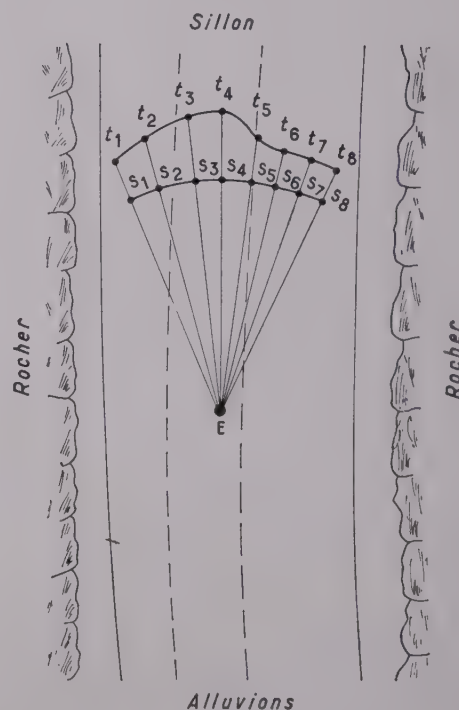 Sillon
t1 t2 t3 t4 t5 t6 t7 t8
S1 S2 S3 S4 S5 S6 S7 S8
Rocher
Rocher
E
Alluvions